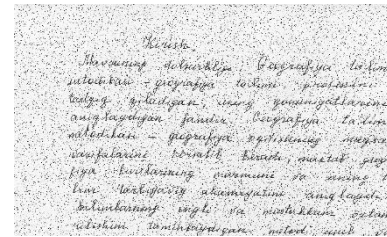 Kirish.
Mavzuning dolzarbligi. Geografiya ta'lim
metodikasi - geografiya ta'limi prosesini
tadqiq qiladigan, uning qonuniyatlarini
aniqlaydigan fandir. Geografiya ta'lim
metodikasi - geografiya o'qitishning maqsad
vazifalarini ko'rib chiqadi, maktab geogra
fiya kurslarining mazmuni va uning
lim tarbiyaviy ahamiyatini aniqlaydi,
bilimlarning ongli va mustahkam
metod,